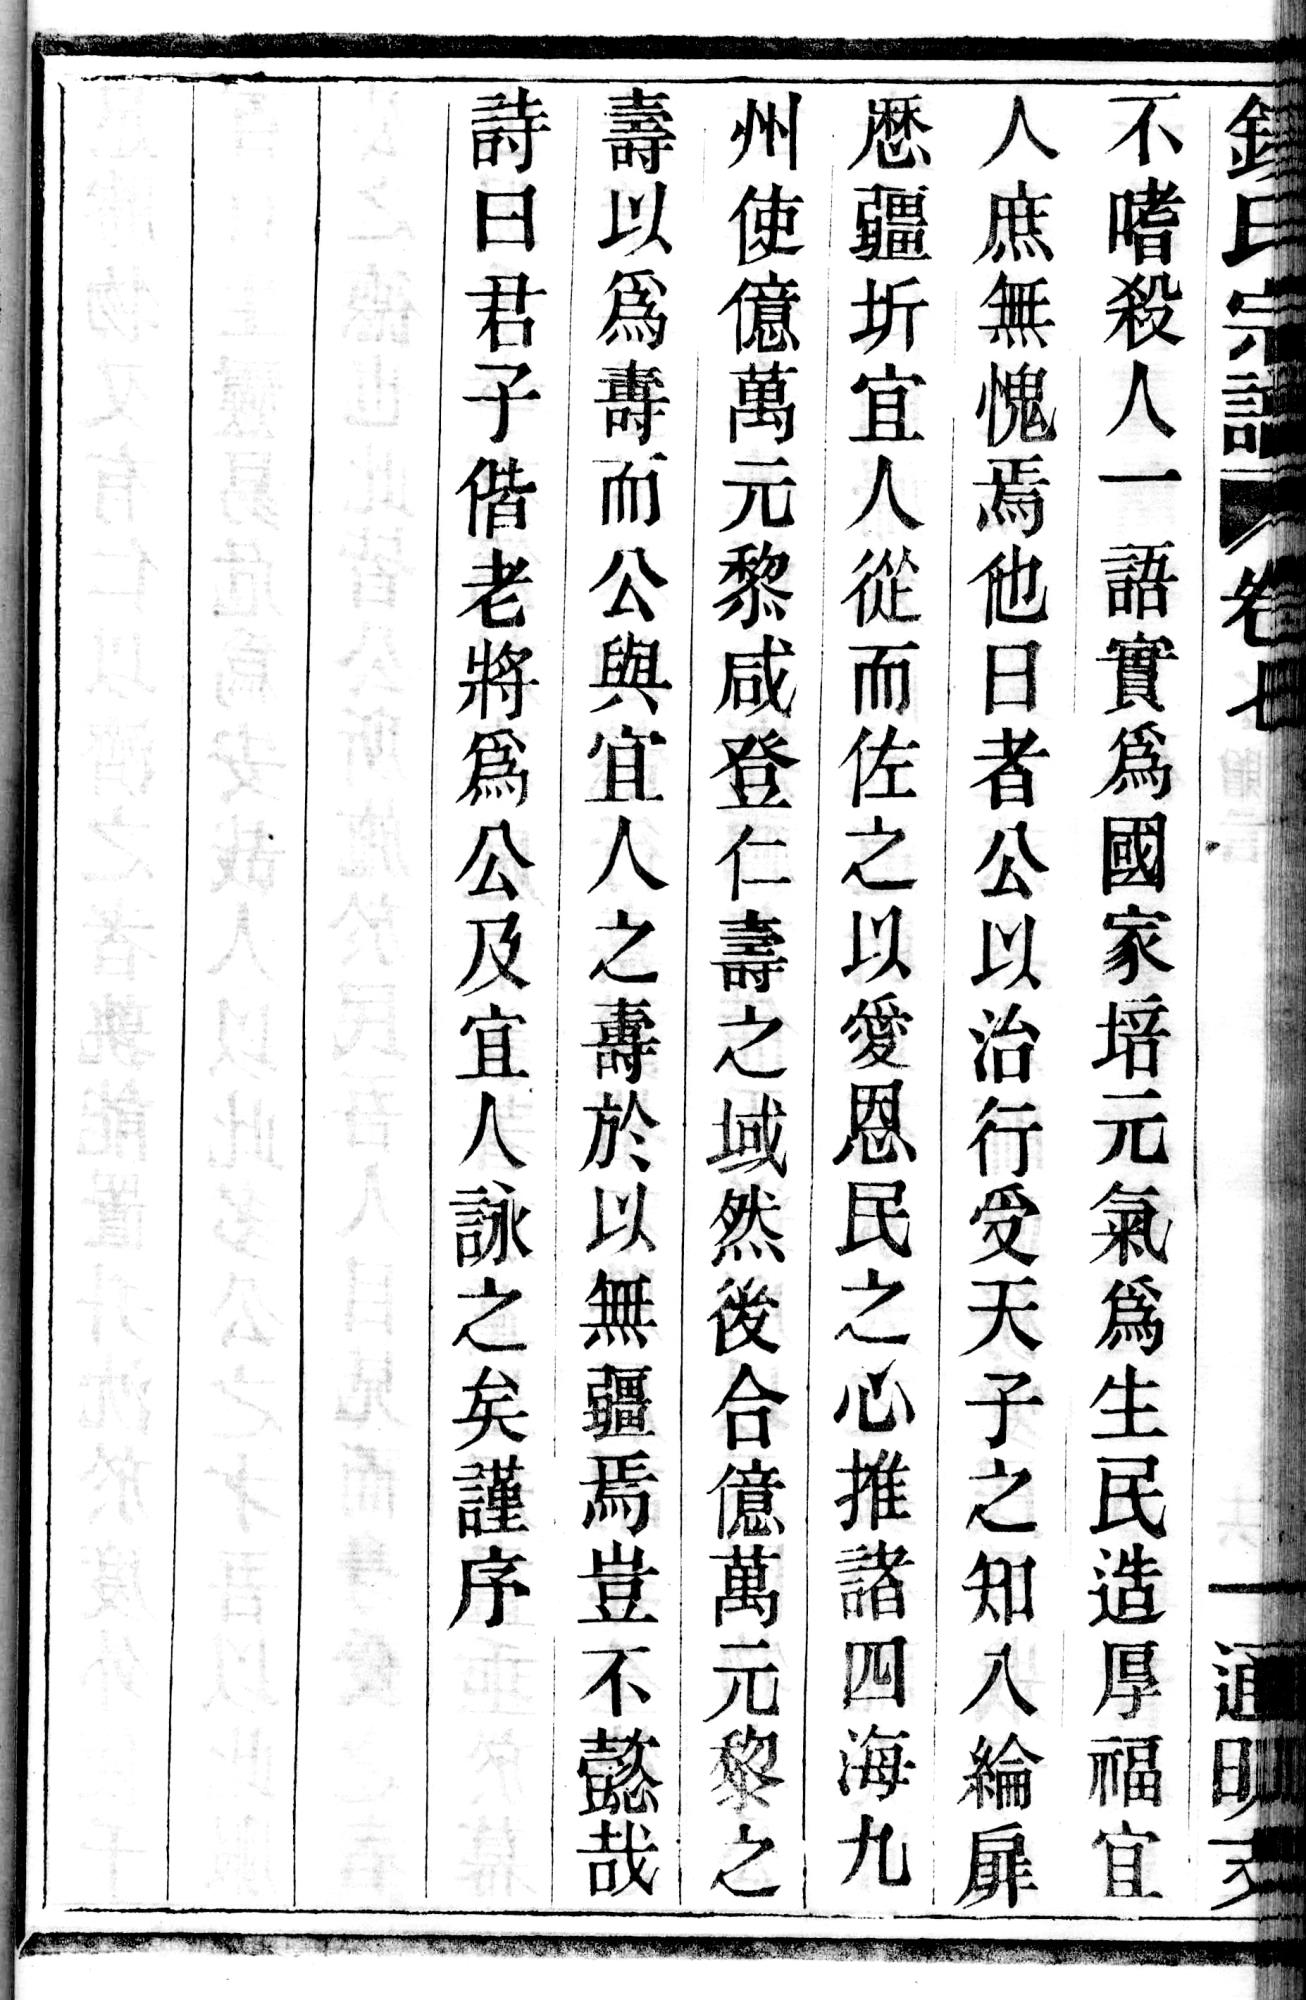 氏宗譜 卷七 通明
不嗜殺人一語實爲國家培元氣爲生民造厚福宜
人庶無愧焉他日者公以治行受天子之知入綸扉
歷疆圻宜人從而佐之以愛恩民之心推諸四海九
州使億萬元黎咸登仁壽之域然後合億萬元黎之
壽以爲壽而公與宜人之壽於以無疆焉豈不懿哉
詩曰君子偕老將爲公及宜人詠之矣謹序